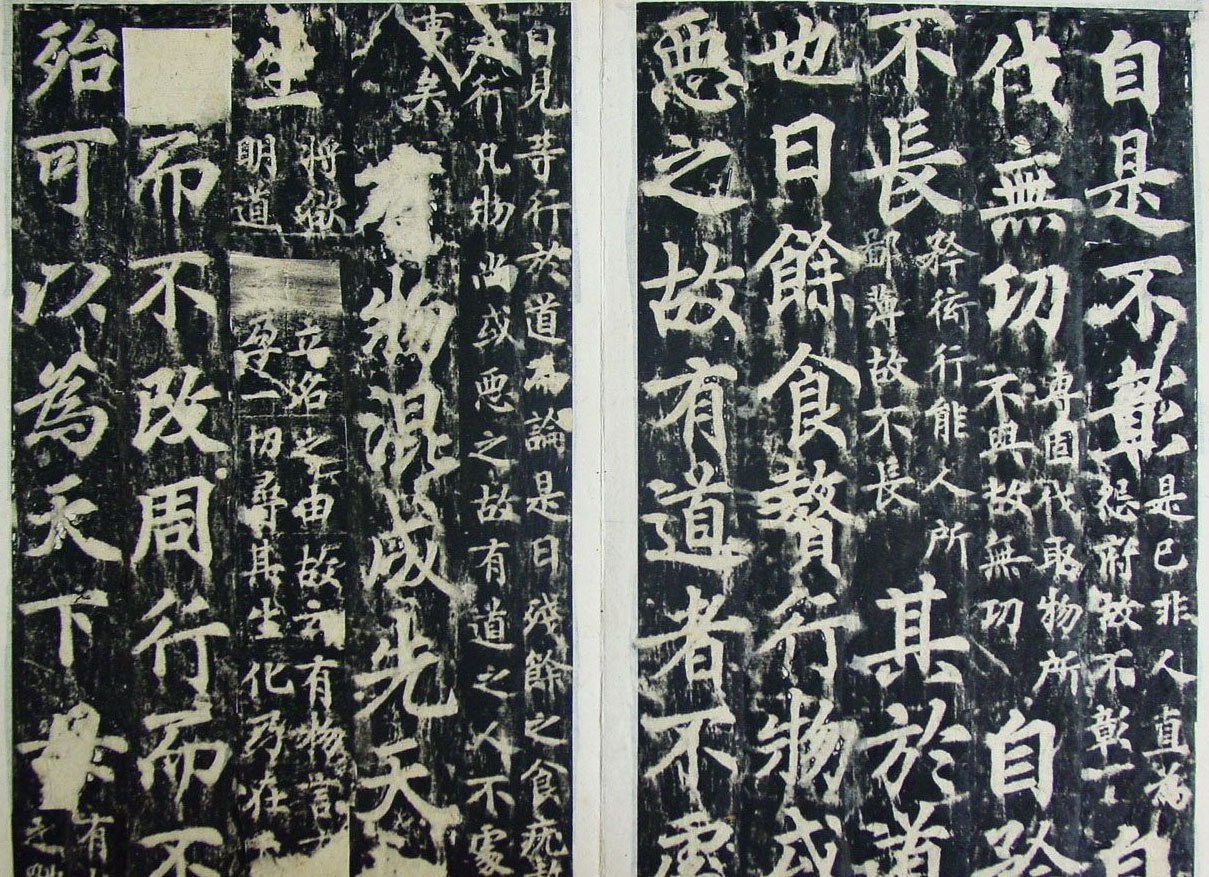 自是不彰是己非人直為怨府故不彰一自
伐無功專固伐取物所不與故無功自矜
不長矜衒行能人所鄙薄故不長其於道
也曰餘食贅行物或
惡之故有道者不處
自見等行於道而論是曰殘餘之食疣贅
行凡物尚或惡之故有道之人不處
矣有物混成先天
生將欲明道立名之由故云有物言一切尋其生化乃在
而不改周行而不
殆可以為天下母有之